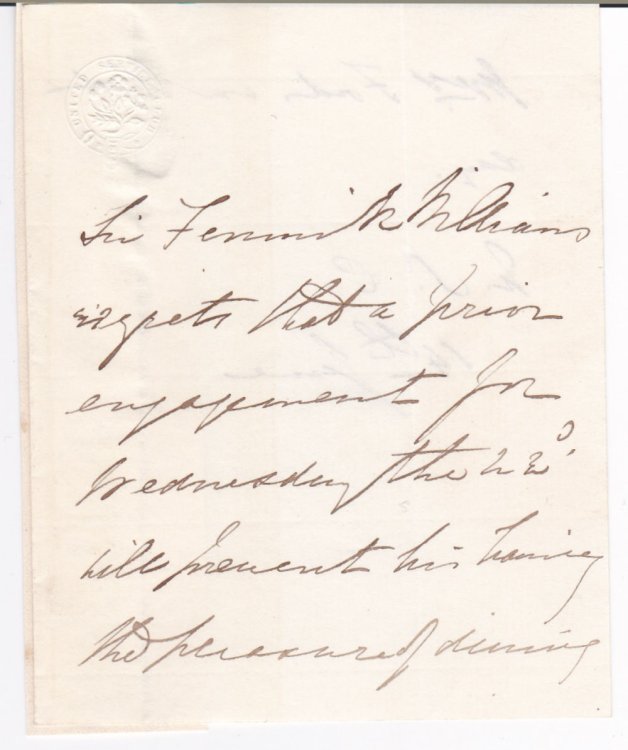 UNITED SERVICE CLUB
Sir Fenwick Williams
regrets that a prior
engagement for
Wednesday the 22d
will prevent his having
the pleasure of dining